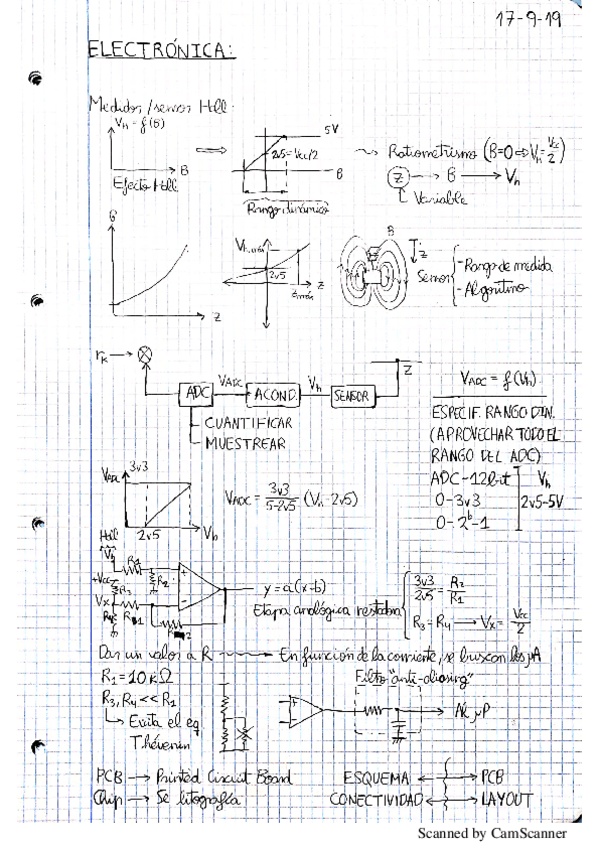 17-9-19
ELECTRÓNICA:
Medidas/sensor Hall
Vh = f(B)
B
Efecto Hall
5V
2v5=Vcc/2
B
Rango dinámico
Ratiometrismo (B=0⇒Vh=Vcc/2)
Z → B → Vh
Variable
B
Z
Vh,máx
2v5
Zmáx
Z
B
Z
Sensor
-Rango de medida
-Algoritmo
rk
ADC
VADC
ACOND.
Vh
SENSOR
Z
CUANTIFICAR
MUESTREAR
VADC = f(Vh)
ESPECIF. RANGO DIN.
(APROVECHAR TODO EL
RANGO DEL ADC)
ADC-12bit
Vh
0-3v3
2v5-5V
0-2^b-1
VADC
3v3
2v5
Vh
VADC = 3v3/5-2v5 (Vh-2v5)
Hall
Vh
R1
R2
+Vcc
R3
Vx
R4
R1
R2
y=a(x-b)
Etapa analógica restadora
3v3/2v5 = R2/R1
R3=R4 → Vx= Vcc/2
Dar un valor a R → En función de la corriente, se buscan los μA
R1=10kΩ
R3,R4<<R1
Evita el eq
Thévenin
Filtro "anti-aliasing"
Al μP
PCB → Printed Circuit Board
Chip → Se litografía
ESQUEMA ↔ PCB
CONECTIVIDAD ↔ LAYOUT
Scanned by CamScanner